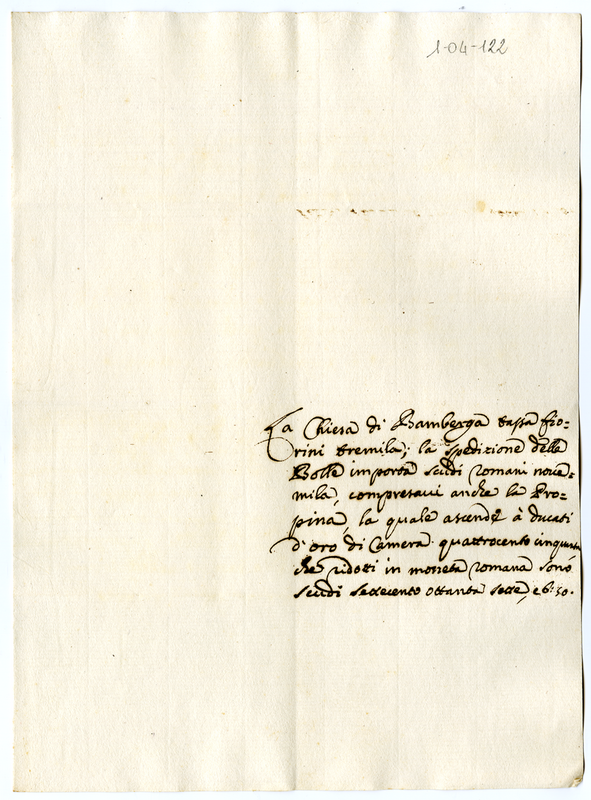 1-04-122
La Chiesa di Bamberga tassa fio=
rini tremila; la spedizione delle
Bolle importa scudi romani nove=
mila, compresavi anche la Pro=
pina, la quale ascende à ducati
d'oro di Camera quattrocento cinquanta
che ridotti in moneta romana sono
scudi settecento ottanta sette, e b: 50.